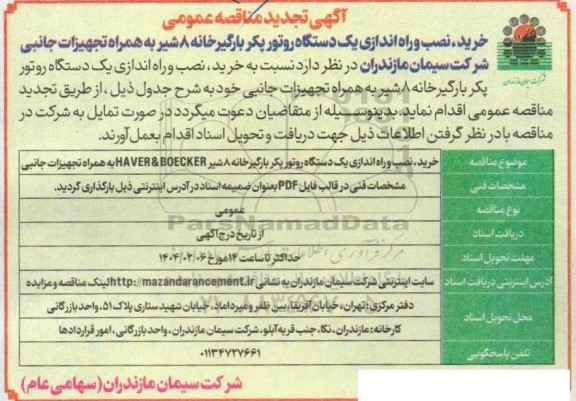 آگهی تجدید مناقصه عمومی
خرید، نصب و راه اندازی یک دستگاه روتور پکر بارگیرخانه ۸ شیر به همراه تجهیزات جانبی
شرکت سیمان مازندران در نظر دارد نسبت به خرید، نصب و راه اندازی یک دستگاه روتور
پکر بارگیرخانه ۸ شیر به همراه تجهیزات جانبی خود به شرح جدول ذیل، از طریق تجدید
مناقصه عمومی اقدام نماید. بدینوسیله از متقاضیان دعوت میگردد در صورت تمایل به شرکت در
مناقصه با در نظر گرفتن اطلاعات ذیل جهت دریافت و تحویل اسناد اقدام بعمل آورند.
موضوع مناقصه خرید، نصب و راه اندازی یک دستگاه روتور پکر بارگیرخانه ۸ شیر HAVER & BOECKER به همراه تجهیزات جانبی
مشخصات فنی مشخصات فنی در قالب فایل PDF بعنوان ضمیمه اسناد در آدرس اینترنتی ذیل بارگذاری گردید.
نوع مناقصه عمومی
دریافت اسناد از تاریخ درج آگهی
مهلت تحویل اسناد حداکثر تا ساعت ۱۴ مورخ ۱۴۰۴/۰۲/۰۶
آدرس اینترنتی دریافت اسناد سایت اینترنتی شرکت سیمان مازندران به نشانی http://mazandarancement.ir لینک مناقصه و مزایده
محل تحویل اسناد دفتر مرکزی: تهران، خیابان آفریقا، بین ظفر و میرداماد، خیابان شهید ستاری پلاک ۵۱، واحد بازرگانی
کارخانه: مازندران، نکا، جنب قریه آبلو، شرکت سیمان مازندران، واحد بازرگانی، امور قراردادها
تلفن پاسخگویی ۰۱۱۳۴۷۲۷۶۶۱
شرکت سیمان مازندران (سهامی عام)
ParsNamadData